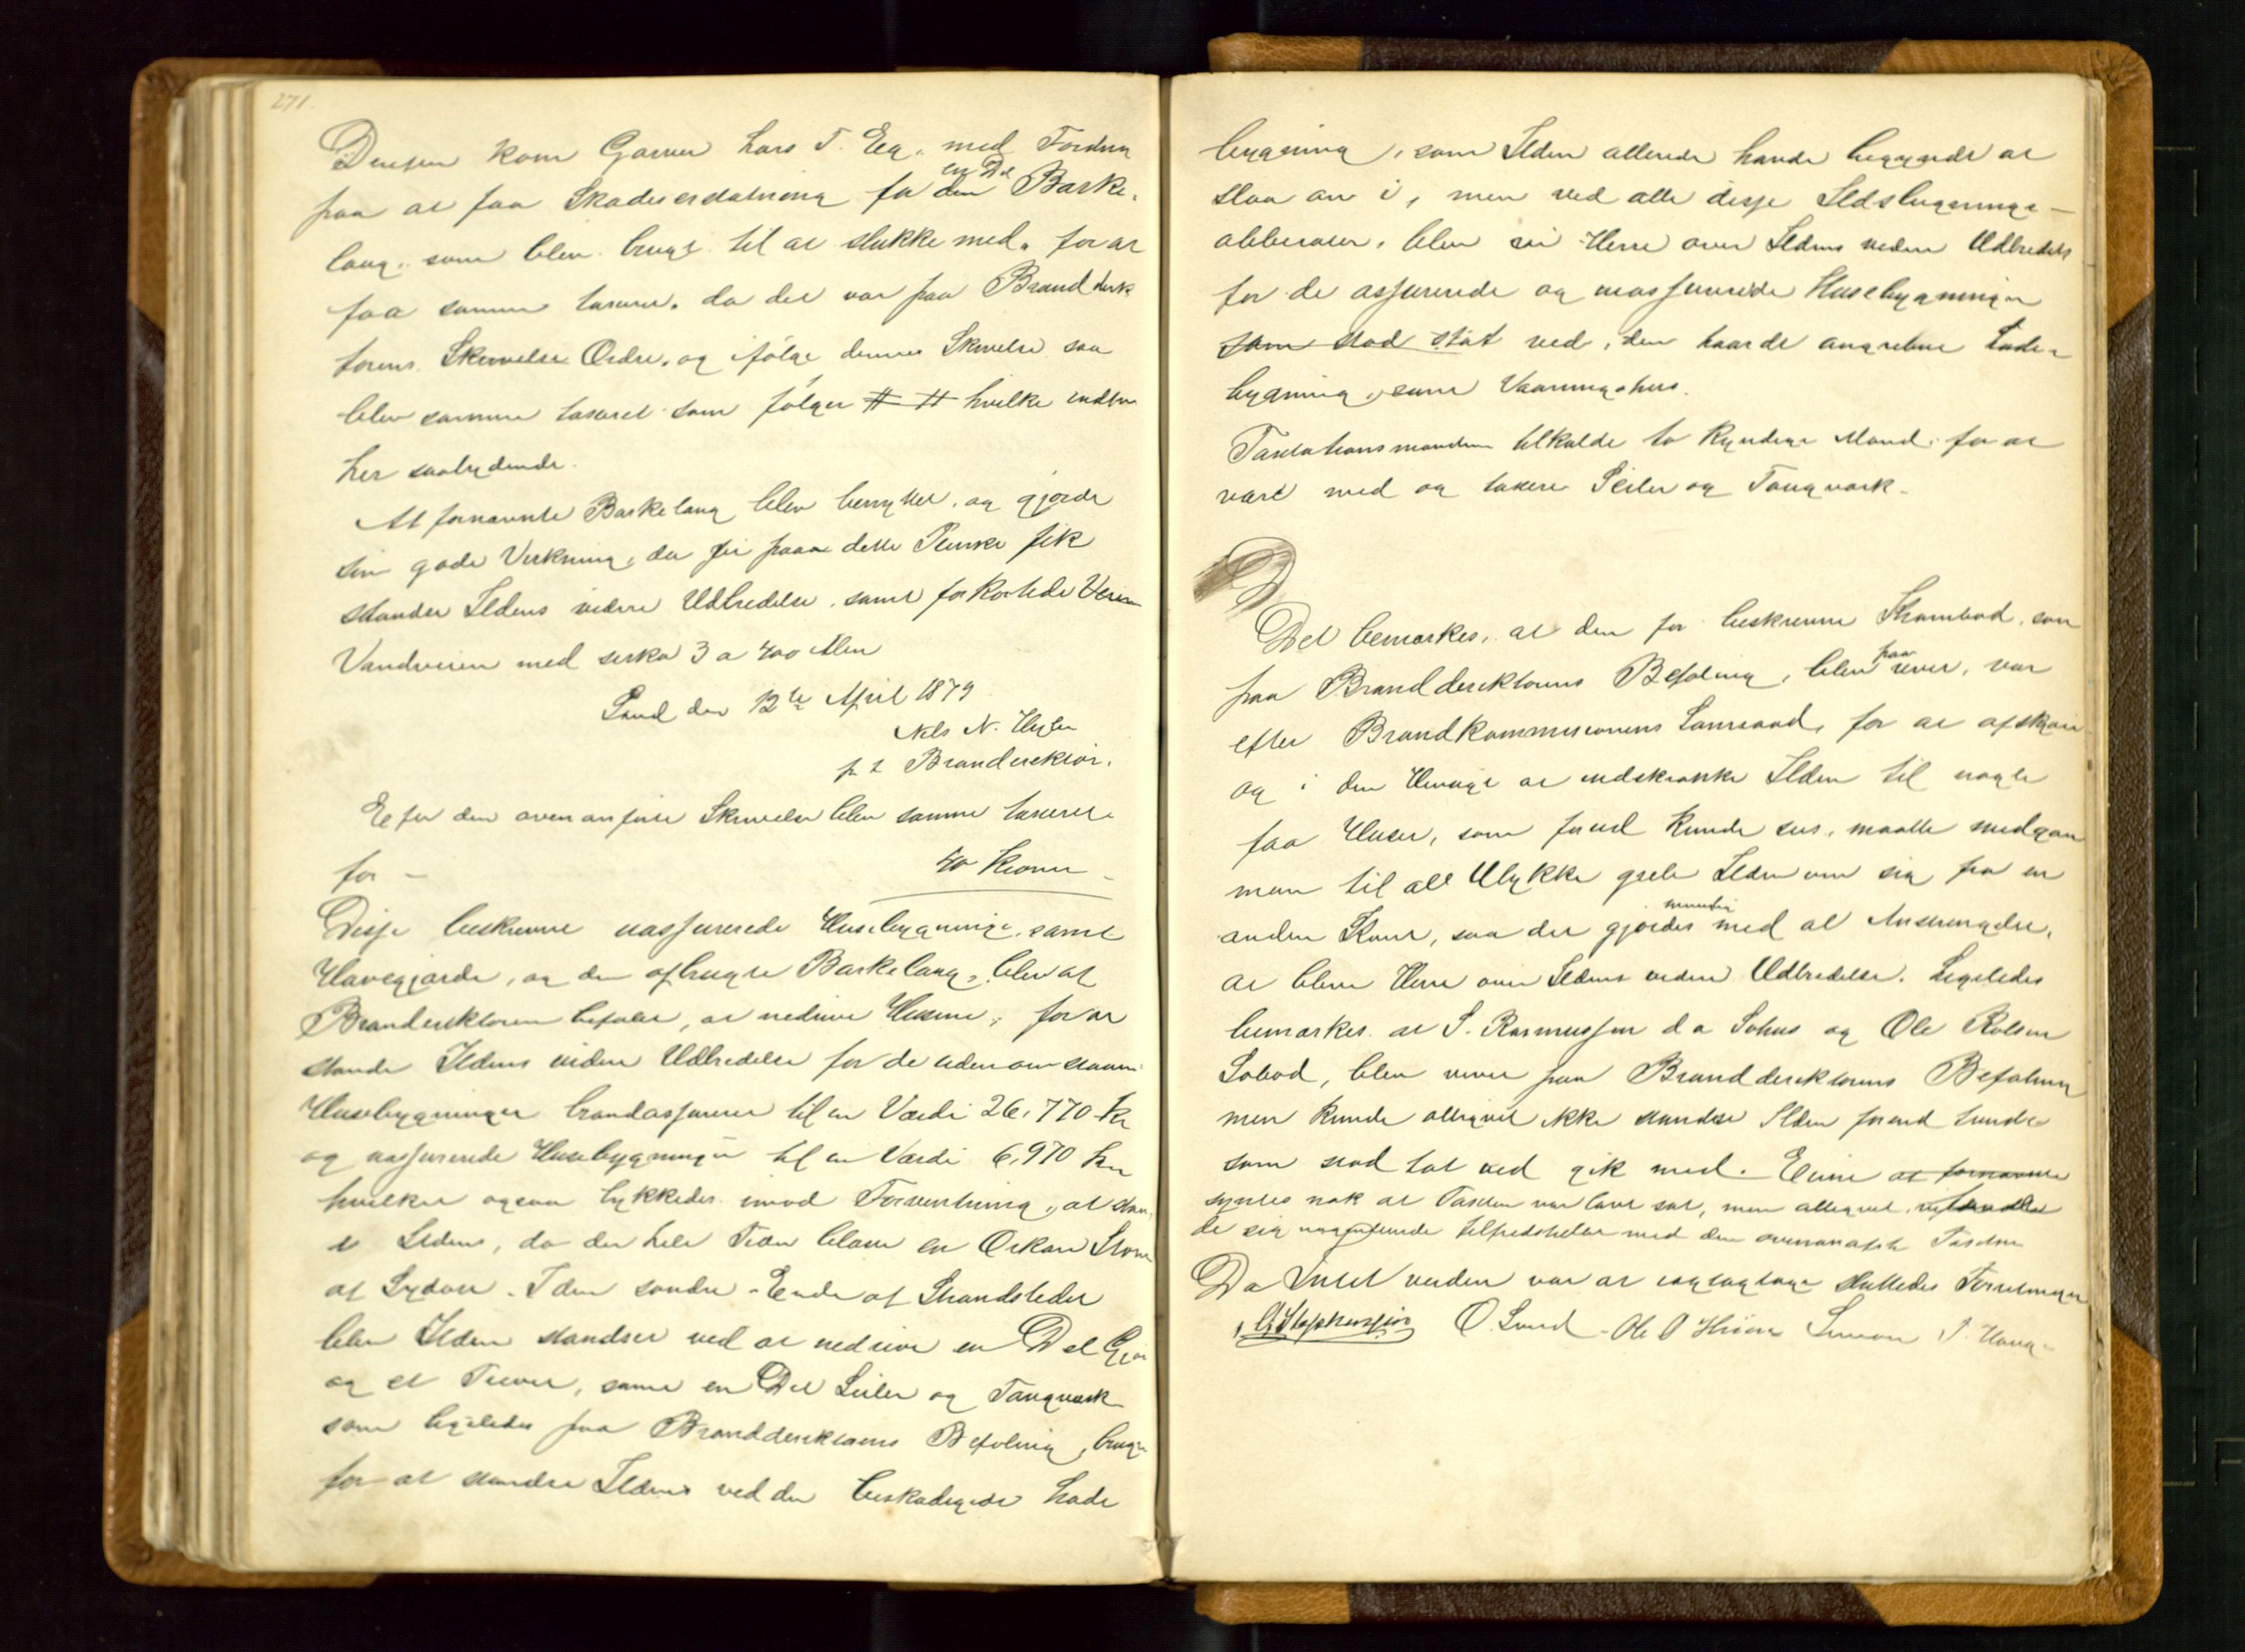 271.
Dersen kom Garver Lars T. Eeg, med Fordring
paa at faa Skadeserstatning for den en Del Barke-
laug, som blev brugt til at slukke med, for at
faa samme taxeret, da det var paa Branddirek
torens Skrivelse Ordre, og ifølge dennes Skrivelse saa
blev samme taxeret som følger # # hvilke indtog
her saalydende.
At fornævnte Barkelaug blev benyttet, og gjorde
sin gode Virkning, da vi paa dette Punkt fik
standse Ildens videre Udbredelse, samt forkortede Veien
Vandveien med serka 3 a 400 Alen
Sand den 12te April 1879
Nils N.
p t Branderektør.
Efter den ovenanførte Skrivelse blev samme taxeret
for - 40 Kroner -
Disse beskrevne uassurerede Husebygninge, samt
Havegjærde, og den afbrugte Barkelaug, blev af
Branderektøren befalet, at nedrive Husene, for at
standse Ildens videre Udbredelse for de udenom staaende
Husebygninger brandassureret til en Værdi 26,770 Kr
og uassurerede Husebygninger til en Værdi 6,970 Kr
hvilket ogsaa lykkedes imod Forventning, at stan
se Ildens, da der hele Tiden blæste en Orkan Storm
af Sydost. I den søndre Ende af Strandstedet
blev Ilden standset ved at nedrive en Del
og et, samt en Del Seiler og Taugværk
som ligeledes paa Branddirektørens Befaling, brugt
for at standse Ildens ved den beskadigede Lade
bygning, som Ilden allerede havde begyndt at
slaa an i, men ved alle disse Ildsbygnings-
, blev vi Herre over Ildens videre Udbredelse
for de assurerede og uassurerede Husebygninger
som stod tæt ved, den haardt angrebne Lade-
bygning, samt Vaaningshus.
Taxtationsmændene tilkaldte to Kyndige Mænd for at
være med og taxere Seiler og Taugværk.
Det bemærkes, at den før beskrevne Krambod, som
paa Branddirektørens Befaling, blev paa revet, var
efter Brandkommisionens Samraad, for at afskjære
og i den Henseende at indskrænke Ilden til nogle
faa Huser, som forud kunde sees, maatte medgaa
men til all Ulykke greb Ilden om sig fra en
anden Kant, saa det gjordes med al Anstrengelse,
at blive Herre over Ildens videre Udbredelse. Ligeledes
bemærkes at S. Rasmussen d a Søhus og Ole Rolsen
Søbod, blev revet paa Branddirektørens Befaling
men kunde alligevel ikke standse Ilden forend
som stod tæt ved gik med. Eierne af fornævnte
syntes nok at Taxten var lavt sat, men alligevel
de sig tilfredsstillet med den ovenanførte Taxten
Da Intet videre var at iagttage sluttedes Forretningen
O. Sund - Ole O Simon T. Haug